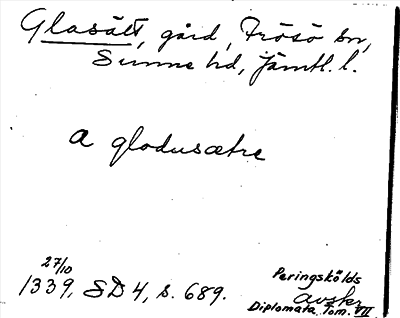 Glasätt, gård, Frösö sn,
Sunne hd, Jämtl. l.
a glodusætre
27/10
1339, SD 4, s. 689.
Peringskölds
avskr.
Diplomata, Tom. VII